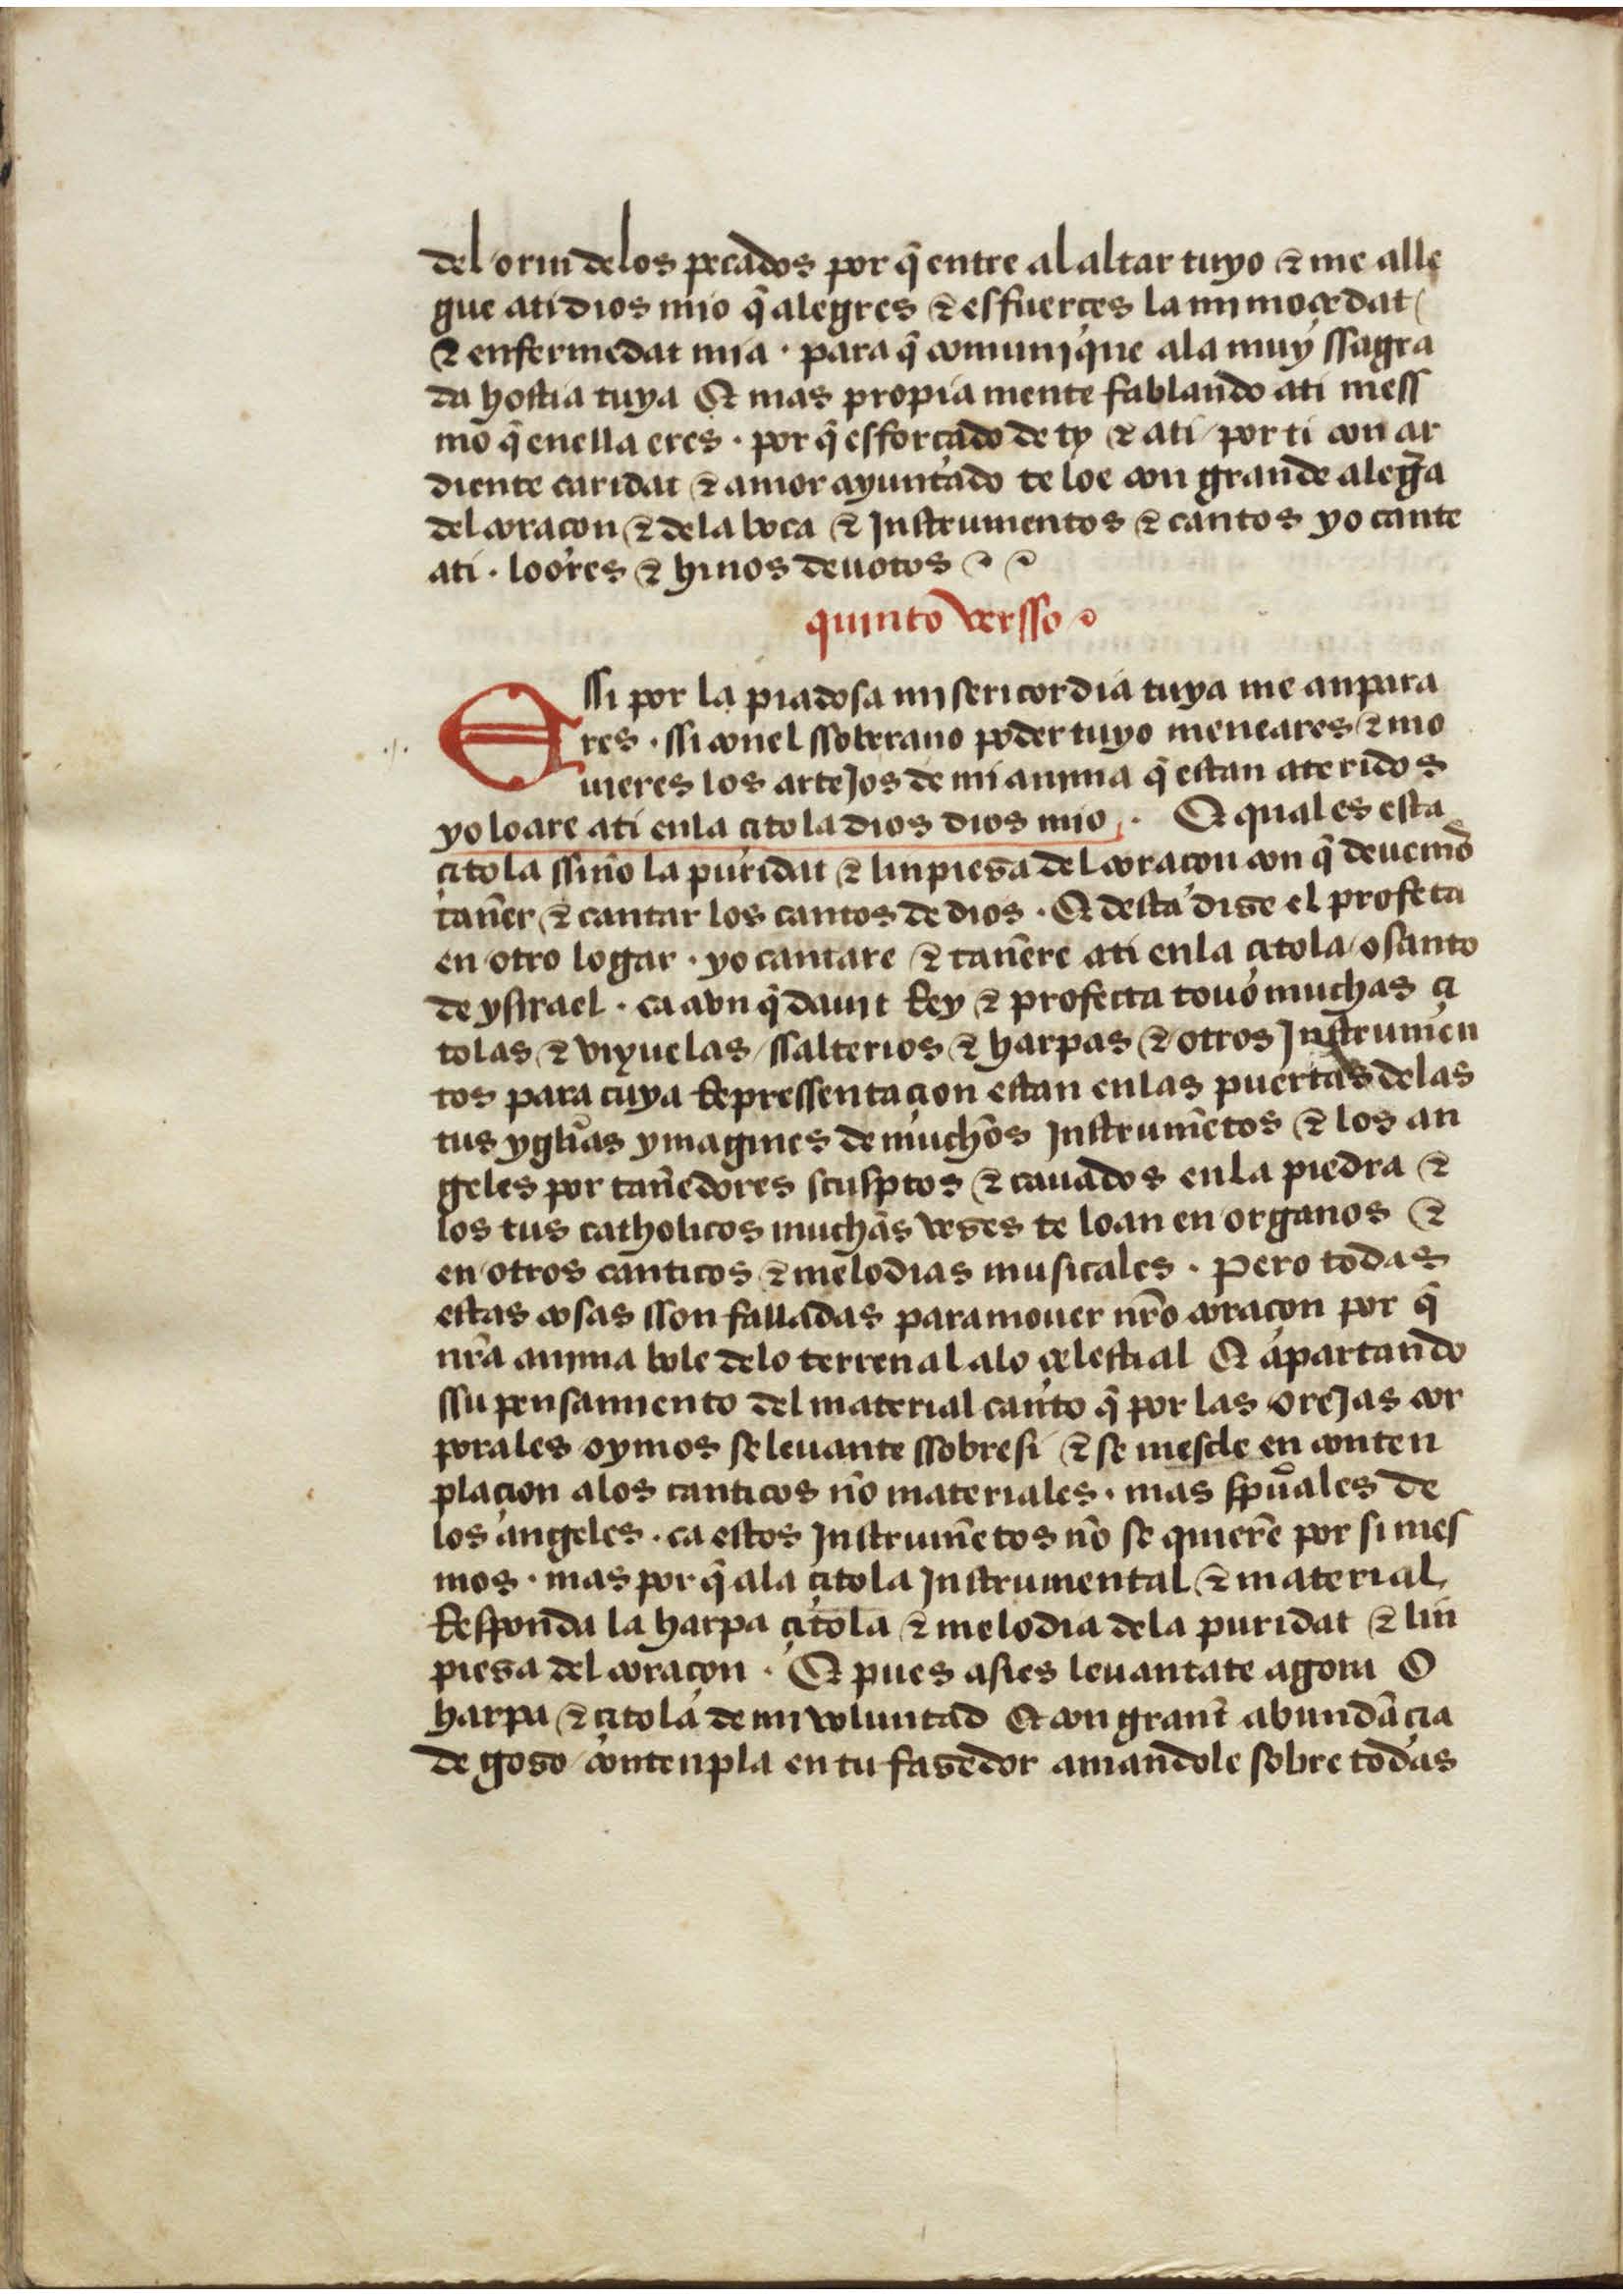 del orin delos pecados por q̃ entre al altar tuyo ⁊ me alle
gue ati dios mio q̃ alegres ⁊ esfuerçes la mi moçedat
⁊ enfermedat mia · para q̃ comunique ala muy ssagra
da hostia tuya Et mas propia mente fablando ati mess
mo q̃ enella eres · por q̃ esforçado de ty ⁊ ati por ti con ar
diente caridat ⁊ amor ayuntado te loe con grande aleg̃a
del coraçon ⁊ dela boca ⁊ Instrumentos ⁊ cantos yo cante
ati · loores ⁊ hinos deuotos
quinto versso
Essi por la piadosa misericordia tuya me anpara
res · ssi conel ssoberano poder tuyo meneares ⁊ mo
uieres los artejos de mi anima q̃ estan ateridos
yo loare ati enla çitola dios dios mio · Et qual es esta
çitola ssino la puridat ⁊ linpiesa del coraçon con q̃ deuemõ
tañer ⁊ cantar los cantos de dios · Et desta dise el profeta
en otro logar · yo cantare ⁊ tañere ati enla çitola o santo
de ysrael · ca aun q̃ dauit Rey ⁊ profecta touo muchas çi
tolas ⁊ viyuelas ssalterios ⁊ harpas ⁊ otros Instrumen
tos para cuya Repressentaçion estan enlas puertas delas
tus ygłias ymagines de muchos Instrumẽtos ⁊ los an
geles por tañedores sculptos ⁊ cauados enla piedra ⁊
los tus catholicos muchas veses te loan en organos ⁊
en otros canticos ⁊ melodias musicales · Pero todas
estas cosas sson falladas para mouer nr̃o coraçon por q̃
nr̃a anima bole delo terrenal alo çelestial Et apartando
ssu pensamiento del material canto q̃ por las orejas cor
porales oymos se leuante ssobresi ⁊ se mescle en conten
plaçion alos canticos nõ materiales · mas sp̃uales de
los angeles · ca estos Instrumẽtos nõ se quierẽ por si mes
mos · mas por q̃ ala çitola Instrumental ⁊ material
Responda la harpa çitola ⁊ melodia dela puridat ⁊ lin
piesa del coraçon · Et pues asi es leuantate agora O
harpa ⁊ çitola de mi voluntad Et con grant abundãçia
de goso contenpla en tu fasedor amandole sobre todas